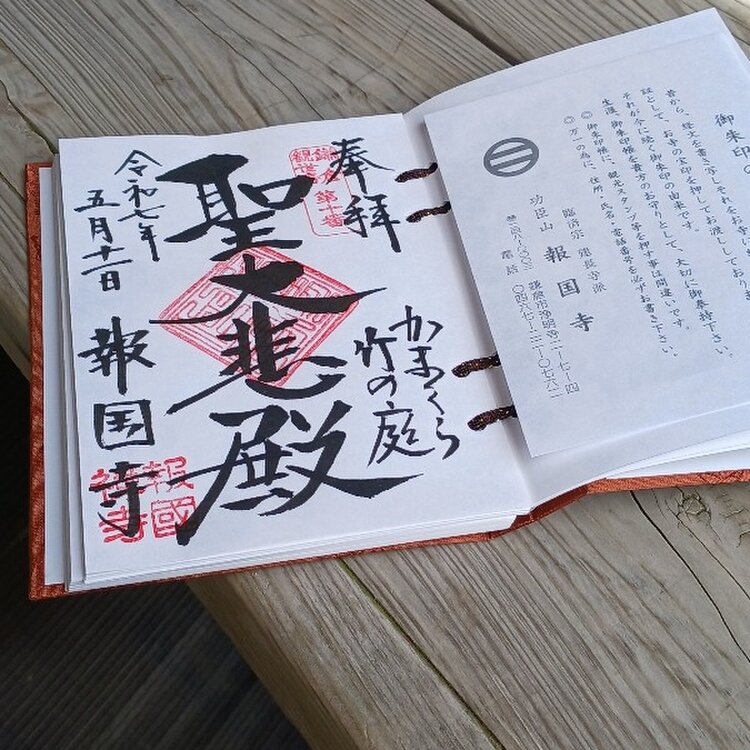 御朱印の
昔から、経文を書き写し、それをお寺
証として、お寺の宝印を押してお渡ししており
それが今に続く御朱印の由来です。
生涯、御朱印帳を貴方のお守りとして、大切に御奉持下さい。
◎御朱印帳に、観光スタンプ等を押す事は間違いです。
◎万一の為に、住所・氏名・電話番号を必ずお書き下さい。
臨済宗 建長寺派
功臣山 報国寺
鎌倉市浄明寺二-七-四
電話 〇四六七-二二-〇七六二
奉拝
かまくら
竹の庭
鎌倉
観世音
第十番
聖大悲殿
令和七年
五月十一日
報国寺
報國
禅寺